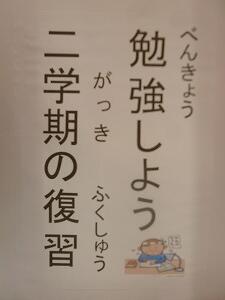 べんきょう
勉強しよう
がっき ふくしゅう
二学期の復習